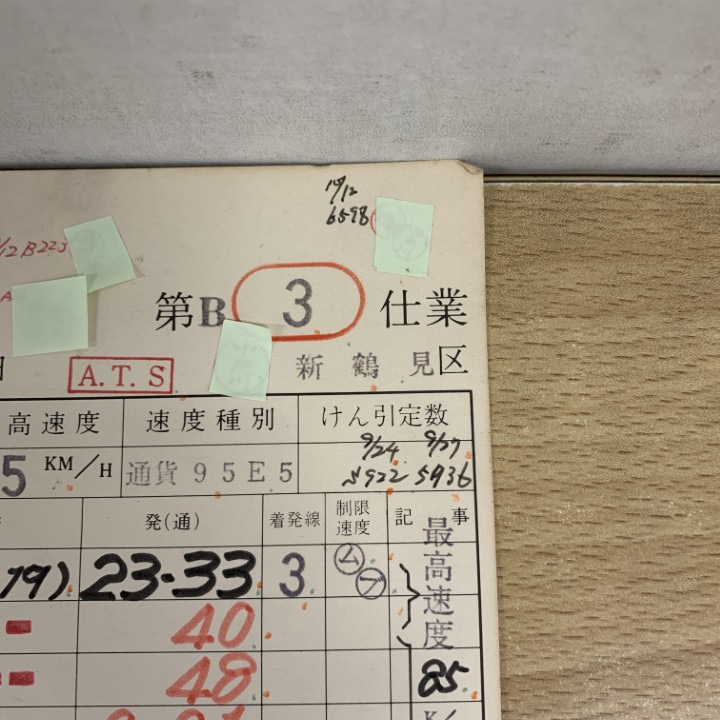 10/12
6598
12 B223
第B 3 仕業
A.T.S
新鶴見区
高速度 速度種別 けん引定数
5 KM/H 通貨95E5 9/24 9/27
5922 5936
発(通) 着発線 制限速度 記事
19) 23-33 3 ム フ 最高速度
40
48 85